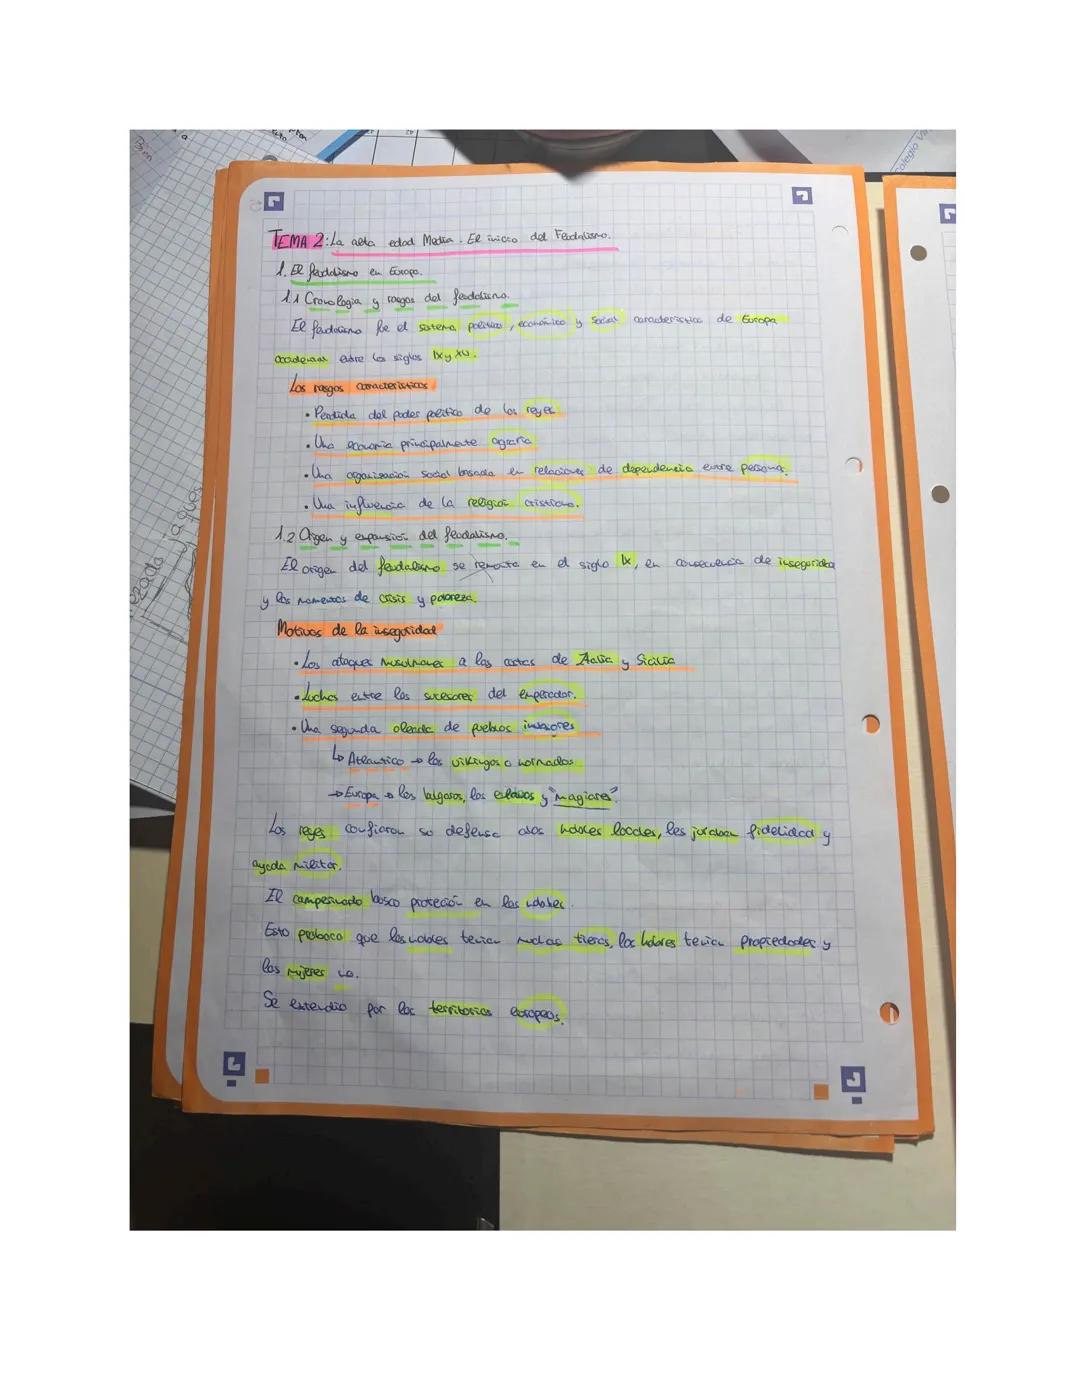 TEMA 2: La alta edad Media. El inicio del Feudalismo.
1. El feudalismo en Europa.
1.1 Cronologia y rasgos del feudalismo.
El feudalismo fue el sistema politico, económico y social caracteristico de Europa
occidental entre los siglos IX y XV.
Los rasgos caracteristicos
• Perdida del poder politico de los reyes
• Una economia principalmente agraria
• Una organización social basada en relaciones de dependencia entre personas.
• Una influencia de la religión cristiana.
1.2 Origen y expansión del feudalismo.
El origen del feudalismo se remonta en el siglo IX, en consecuencia de inseguridad
y los momentos de crisis y pobreza.
Motivos de la inseguridad
• Los ataques musulmanes a las costas de Italia y Sicilia
• Luchas entre los sucesores del emperador.
• Una segunda oleada de pueblos invasores
↳ Atlantico → los vikingos o normados
→ Europa → los bulgaros, los eslavos y "magiares".
Los reyes confiaron su defensa a los nobles locales, les juraban fidelidad y
ayuda militar.
El campesinado busco proteción en los nobles.
Esto proboco que los nobles tenian muchas tieras, los tenian propiedades y
las mujeres no.
Se extendio por los territorios europeos.
Colegio